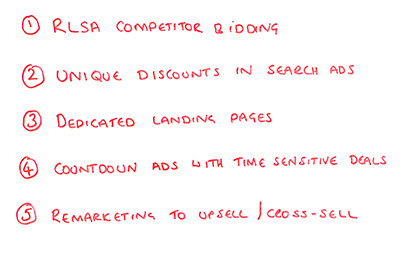 ① RLSA COMPETITOR BIDDING
② UNIQUE DISCOUNTS IN SEARCH ADS
③ DEDICATED LANDING PAGES
④ COUNTDOWN ADS WITH TIME SENSITIVE DEALS
⑤ REMARKETING TO UPSELL / CROSS-SELL